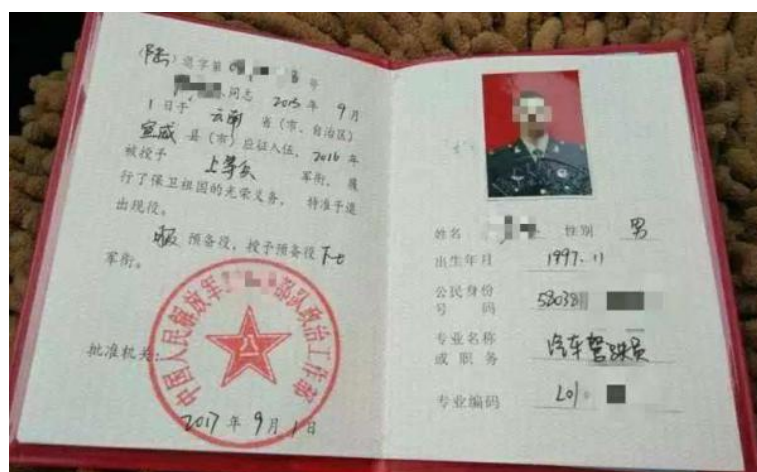 (陆) 退字第 号
同志 2015 年 9 月
1 日于 云南 省(市、自治区)
宣威 县(市)应征入伍, 2016 年
被授予 上等兵 军衔, 履
行了保卫祖国的光荣义务, 特准予退
出现役。
服 预备役, 授予预备役 下士
军衔。
中国人民解放军 部队政治工作部
批准机关:
2017 年 9 月 1 日
姓名 性别 男
出生年月 1997.11
公民身份
号 码
专业名称 汽车驾驶员
或 职 务
专业编码